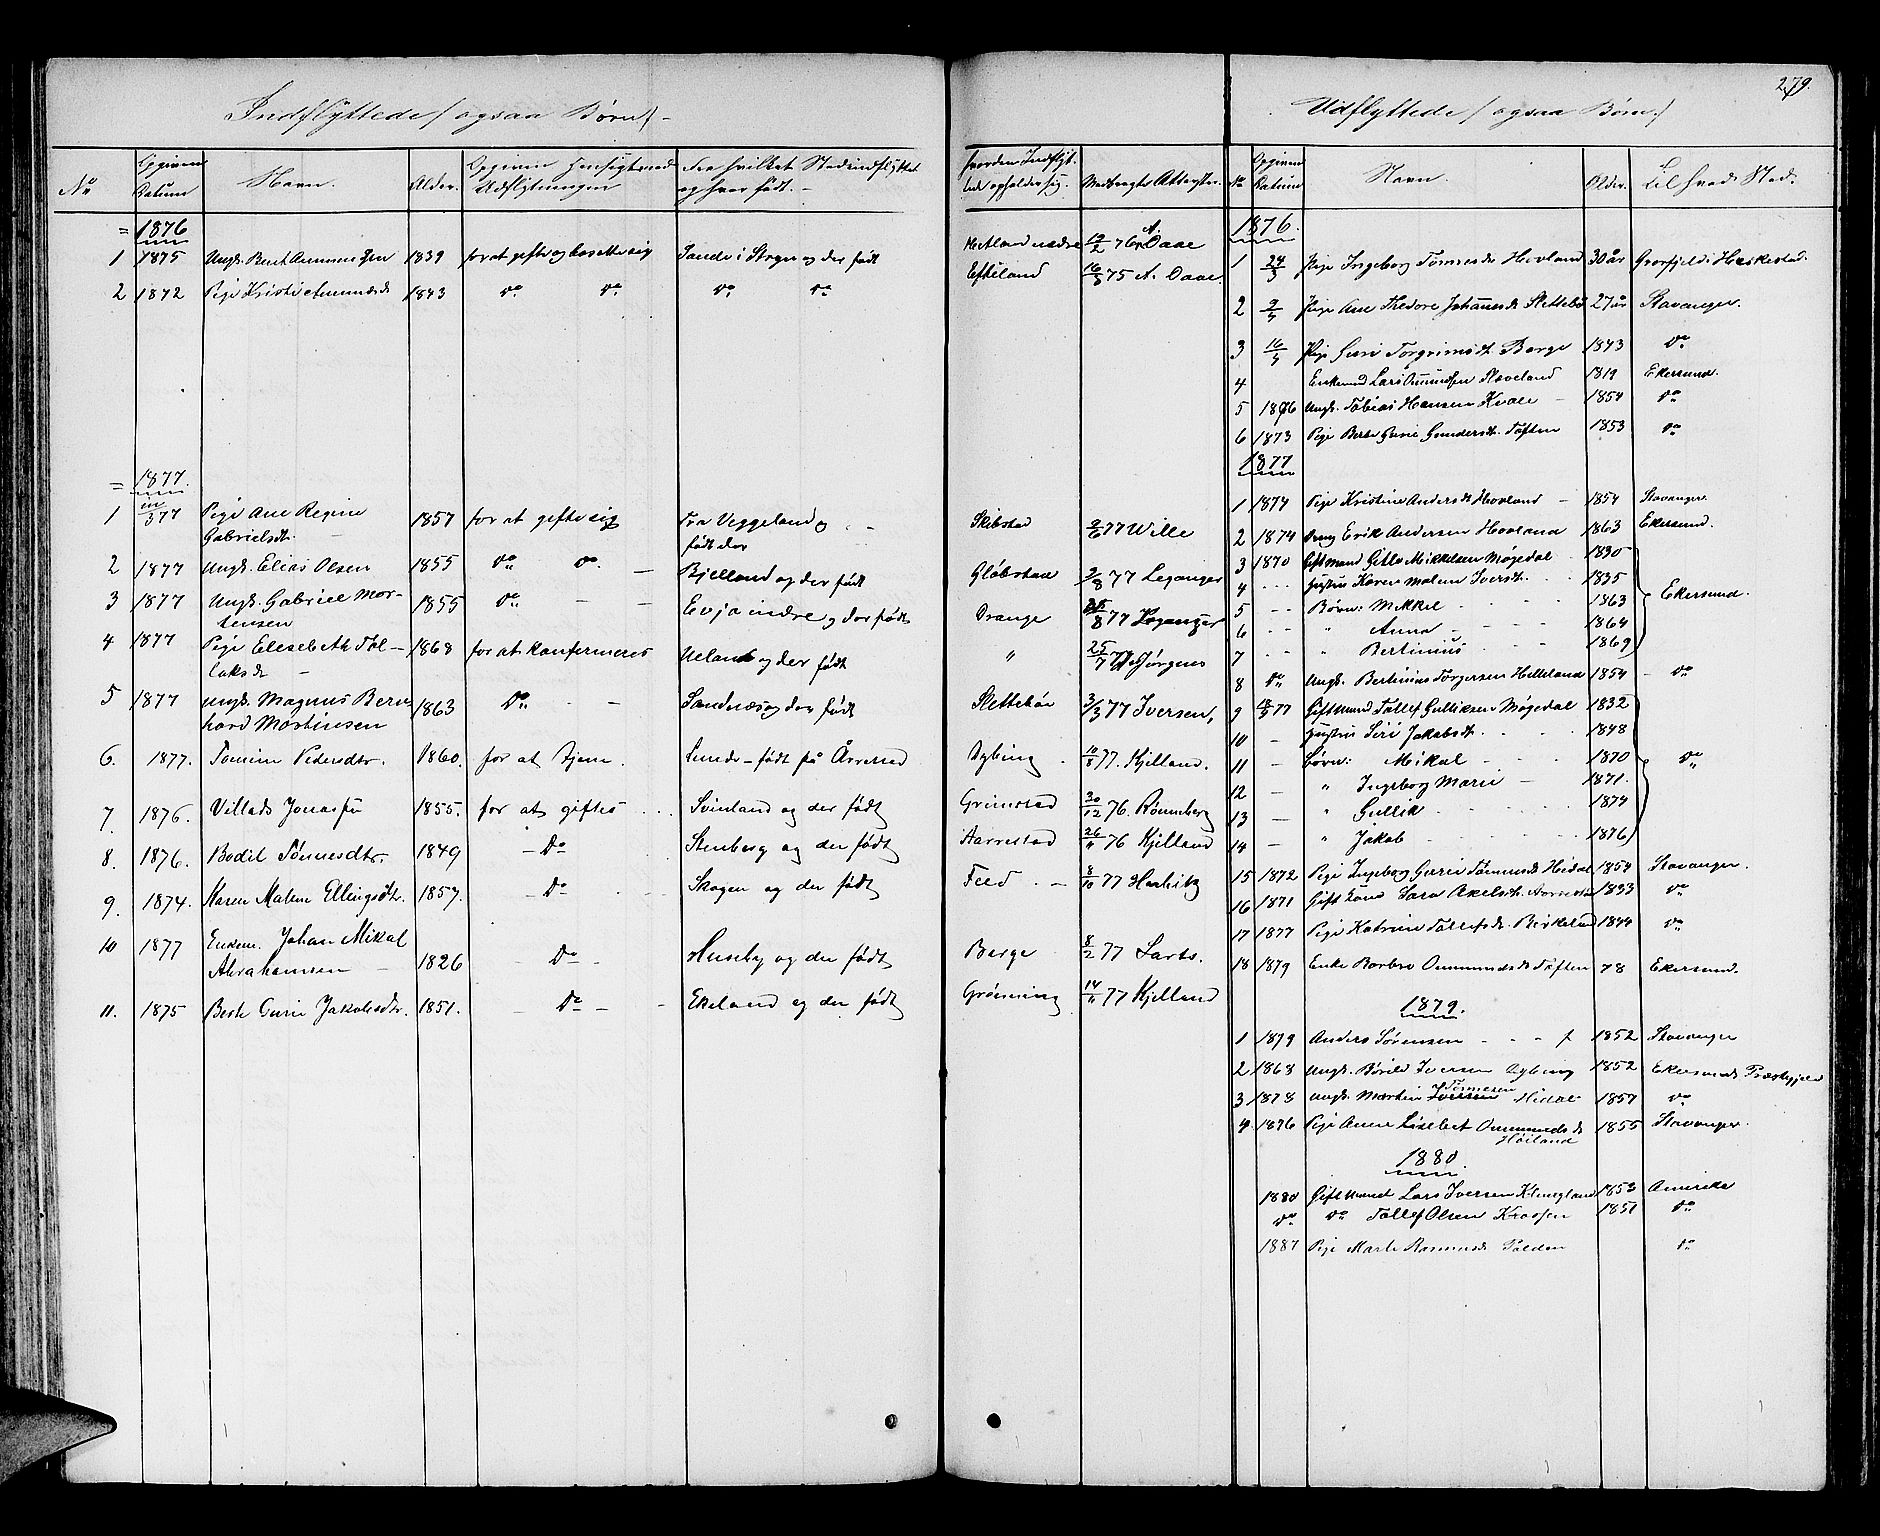 279.
Indflyttede / ogsaa Børn /
No
Opgiven Datum
Navn.
Alder.
Opgiven Hensigt med Udflytningen
Fra hvilket Sted indflyttet og hvor født.
hvorden Indflyttede opholder sig.
Medbragte Attester.
= 1876
1 1875 Ungk. Bent Ommundsen 1839 for at gifte og bosætte sig Sande i Strge og der født Hetland nedre 19/2 76 A. Daae
2 1872 Pige Kristi Ammundsdt 1843 do do do do Eskeland 16/3 75 A. Daae.
= 1877.
1 377 Pige Ane Regine Gabrielsdt. 1857 for at gifte sig Fra Veggeland og født der Skibstad 2/6 77 Wille
2 1877 Ungk. Elias Olsen 1855 do do. Bjelland og der født Gløbstad 2/8 77 Leganger
3 1877 Ungk. Gabriel Mortensen 1855 do Evja indre og der født Drange 25/8 77 Leganger
4 1877 Pige Elisebeth Tollaksdt 1863 for at konfirmeres Ueland og der født " 25/7 77 Jørgens
5 1877 Ungk. Magnus Bernhard Mortinesen 1863 Do Sandnæs og der født Slettebø 3/3 77 Iversen,
6. 1877. Tomine Pedersdtr. 1860. for at tjene. Lunde – født på Årrestad Dybing 10/8 77. Kjelland.
7. 1876. Villads Jonassen 1855. for at giftes Svinland og der født Grimstad 30/12 76. Rønneberg
8. 1876. Bodil Tønnesdtr. 1849 Do Stenberg og der født Aarrestad 26/11 76 Kjelland
9. 1874. Karen Malene Ellingsdtr. 1857. Do Skogen og der født Feed 8/10 77
10 1877 Enkem. Johan Mikal Abrahamsen 1826 Do Huseby og der født Berge 8/2 77
11. 1875 Berte Gurie Jakobsdtr. 1851. Do Ekeland og der født Grøsning 14/11 77 Kjelland
Udflyttede / ogsaa Børn /
No
Opgiven Datum
Navn.
Alder.
Til hvad Sted.
1876.
1 24/3 Pige Ingeborg Tønnesdt Hovland 30 år Grosfjeld i Heskestad.
2 2/4 Pige Ane Thedore Johannesdt Slettebø 27 år Stavanger.
3 16/4 Pige Guri Torgrimsdt Berge 1843 do
4 Enkemand Lars Omundsen Skeveland 1819 Ekersund.
5 1876 Ungk. Tobias Hansen Kvale 1854 do
6 1873 Pige Berte Gurie Gundersdt. Toften 1853 do
1877
1 1874 Pige Kristine Andersdt Hovland 1854 Stavanger
2 1874 Dreng Erik Andersen Hovland 1863 Ekersund.
3 1870 Giftmand Gitle Mikkelsen Møgedal 1830
4 Hustru Karen Malene Iversdt. 1835
5 Børn: Mikkel 1863 Ekersund.
6 " Anna 1864
7 " Bertinius 1869
8 do Ungk. Bertinius Torgersen Helleland 1854 do
9 18/5 77 Giftmand Tollef Gulliksen Møgedal 1832
10 Hustru Siri Jakobsdt. 1848
11 Børn: Mikal 1870 do
12 " Ingeborg Marie 1871.
13 " Gullik 1874
14 " Jakob 1876
15 1872 Pige Ingeborg Gurie Tønnesdt Hidal 1854 Stavanger.
16 1871 Gift Kone Sara Akelsdt. Aarrestad 1833 do
17 1877 Pige Katrine Tollefsdt. Birkeland 1844 do
18 1879 Enke Barbro Ommundsdt Toften 78 Ekersund.
1879.
1 1879 Anders Sørensen 1852 Stavanger
2 1868 Ungk. Børild Iversen Dybing 1852 Ekersunds Præstegjeld
3 1878 Ungk. Martin Iversen Tønnesen Hidal 1857 do
4. 1876 Pige Anne Lisebet Ommundsdt Høiland 1855 Stavanger.
1880.
1880 Giftmand Lars Iversen Klungland 1853 Amerika
do do Tollef Olsen Krossen 1851 do
1887 Pige Marte Rasmusdt Tolden do